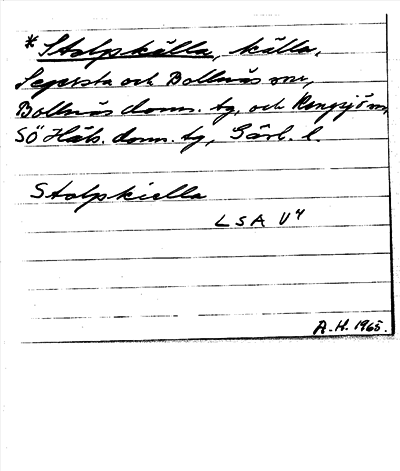 * Stolpkälla, källa,
Segersta och Bollnäs snr,
Bollnäs doms. tg, och Rengsjö sn,
Sö Häls. doms. tg, Gävl. l.
Stolpkiella
LSA U4
A.H. 1965.